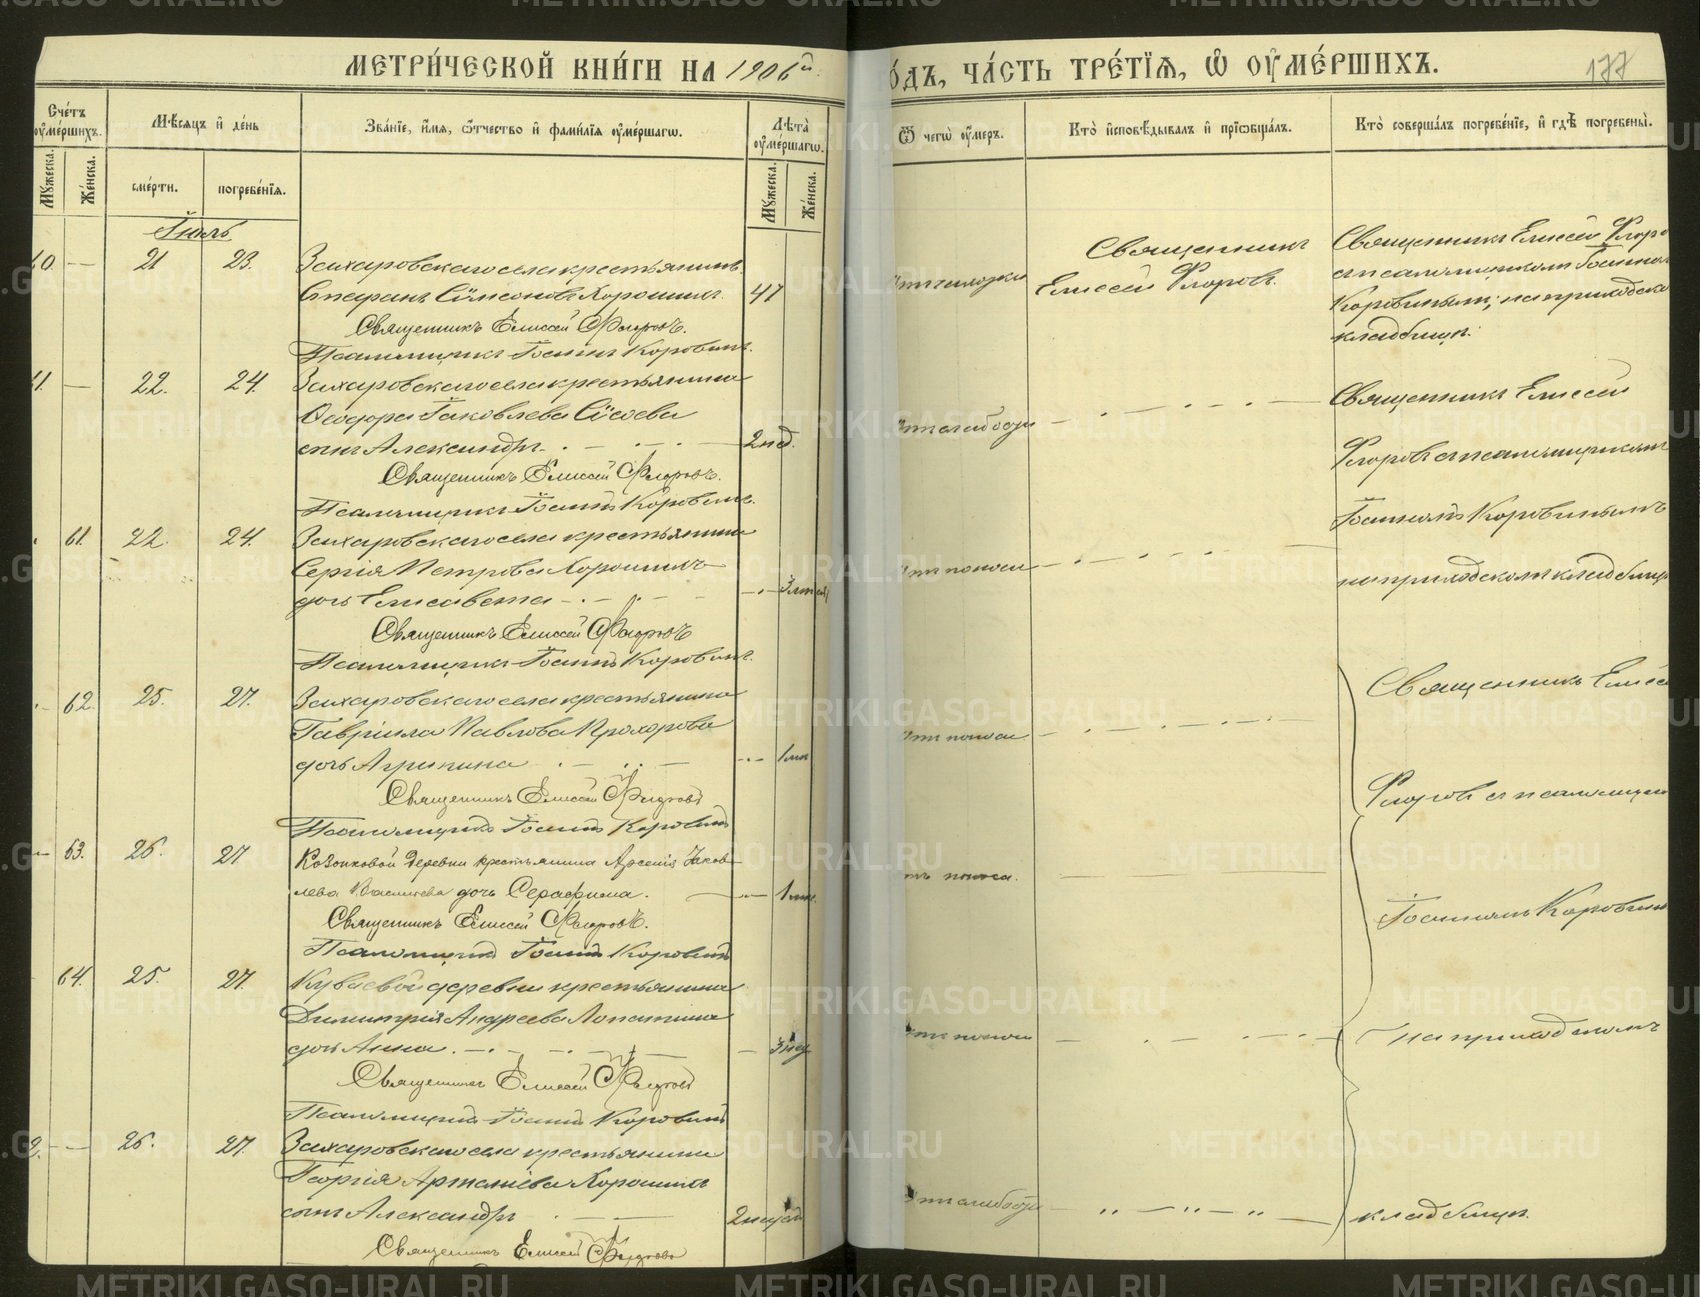 МЕТРИ́ЧЕСКОЙ КНИ́ГИ НА 1906й
О́ДЪ, ЧА́СТЬ ТРЕ́ТІЯ, Ѿ ОУМЕ́РШИХЪ.
177
Сче́тъ оумершихъ.
Мужеска.
Же́нска.
Мѣсяцъ и де́нь
сме́рти.
погребе́нїя.
Зва́нїе, и҆мя, ѻ҆тчество и҆ фами́лїя оумершагѡ.
Лѣта̀ оуме́ршагѡ.
Мужеска.
Же́нска.
Ѿ чегѡ̀ оумеръ.
Кто̀ и҆сповѣдывалъ и҆ прїѡбща́лъ.
Кто̀ соверша́лъ погребе́нїе, и҆ гдѣ̀ погребены̀.
Іюль
60. — 21 23.
Захаровскаго села крестьянинъ
Стефанъ Сѵмеоновъ Хорошихъ. 47
Священникъ Елисей Флоровъ.
Псаломщикъ Іоаннъ Коровинъ.
Священникъ
Елисей Флоровъ.
Священникъ Елисей Флоро
съ псаломщикомъ Іоанномъ
Коровинымъ; на приходско
кладбищѣ.
61. — 22. 24.
Захаровскаго села крестьянина
Ѳеодора Іаковлева Сысоева
сынъ Александръ. 2 нед.
Священникъ Елисей Флоровъ.
Псаломщикъ Іоаннъ Коровинъ.
Отъ слабости
Священникъ Елисей
Флоровъ съ псаломщикомъ
Іоанномъ Коровинымъ
на приходскомъ кладбищѣ
61. 22. 24.
Захаровскаго села крестьянина
Сергія Петрова Хорошихъ
дочь Елисавета
Священникъ Елисей Флоровъ
Псаломщикъ Іоаннъ Коровинъ.
Отъ поноса
62. 25. 27.
Захаровскаго села крестьянина
Гавріила Павлова Прохорова
дочь Агрипина 1 мѣс
Священникъ Елисей Флоровъ
Псаломщикъ Іоаннъ Коровинъ
Отъ поноса
Священникъ Елисей
Флоровъ съ псаломщик
63. 26. 27
деревни крестьянина Арсенія Іаков-
лева дочь Серафима. 1 мѣс.
Священникъ Елисей Флоровъ.
Псаломщикъ Іоаннъ Коровинъ
тъ поноса.
Іоанномъ Коровин
64. 25. 27.
Куваевой деревни крестьянина
Димитрія Андреева Лопатина
дочь Анна. 3 нед
Священникъ Елисей Флоровъ
Псаломщикъ Іоаннъ Коровинъ
Отъ поноса
на приходскомъ
2. — 26. 27.
Захаровскаго села крестьянина
Георгія Хорошихъ
сынъ Александръ 2 недѣл
Священникъ Елисей Флоровъ
Отъ слабости
кладбищѣ.